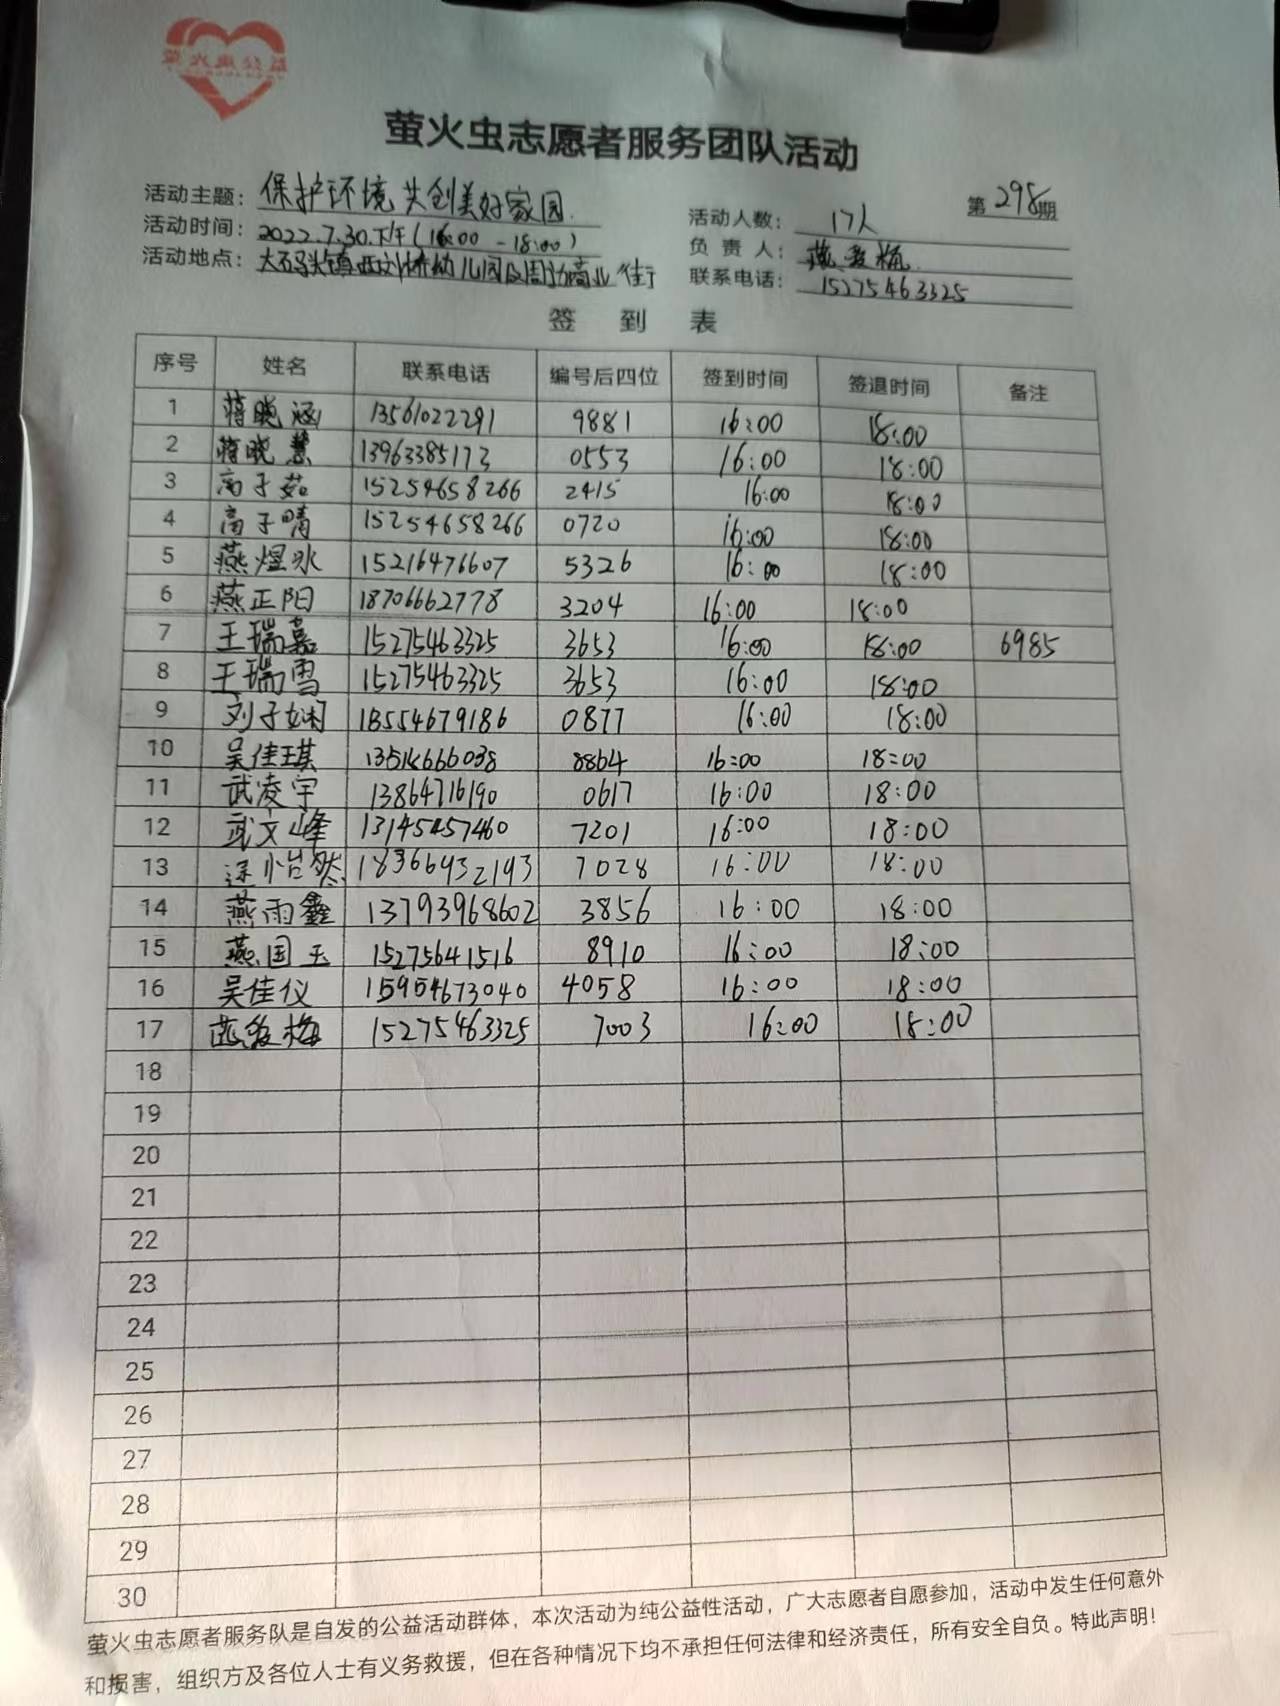 萤火虫志愿者服务团队活动
第298期
活动主题：保护环境 共创美好家园.
活动人数：17人
活动时间：2022.7.30.下午(16:00-18:00)
负责人：燕爱梅
活动地点：大码头镇西刘桥幼儿园及周边商业街
联系电话：15275463325
签到表
序号 姓名 联系电话 编号后四位 签到时间 签退时间 备注
1 蒋晓涵 13561022291 9881 16:00 18:00
2 蒋晓慧 13963385173 0553 16:00 18:00
3 高子茹 15254658266 2415 16:00 18:00
4 高子晴 15254658266 0720 16:00 18:00
5 燕煜冰 15216476607 5326 16:00 18:00
6 燕正阳 18706662778 3204 16:00 18:00
7 王瑞嘉 15275463325 3653 16:00 18:00 6985
8 王瑞雪 15275463325 3653 16:00 18:00
9 刘子娴 18554679186 0877 16:00 18:00
10 吴佳琪 8864 16:00 18:00
11 武凌宇 13864716190 0617 16:00 18:00
12 武文峰 13145457460 7201 16:00 18:00
13 怡然 18366432193 7028 16:00 18:00
14 燕雨鑫 13793968602 3856 16:00 18:00
15 燕国玉 15275641516 8910 16:00 18:00
16 吴佳仪 15954673040 4058 16:00 18:00
17 燕爱梅 15275463325 7003 16:00 18:00
18
19
20
21
22
23
24
25
26
27
28
29
30
萤火虫志愿者服务队是自发的公益活动群体，本次活动为纯公益性活动，广大志愿者自愿参加，活动中发生任何意外
和损害，组织方及各位人士有义务救援，但在各种情况下均不承担任何法律和经济责任，所有安全自负。特此声明！